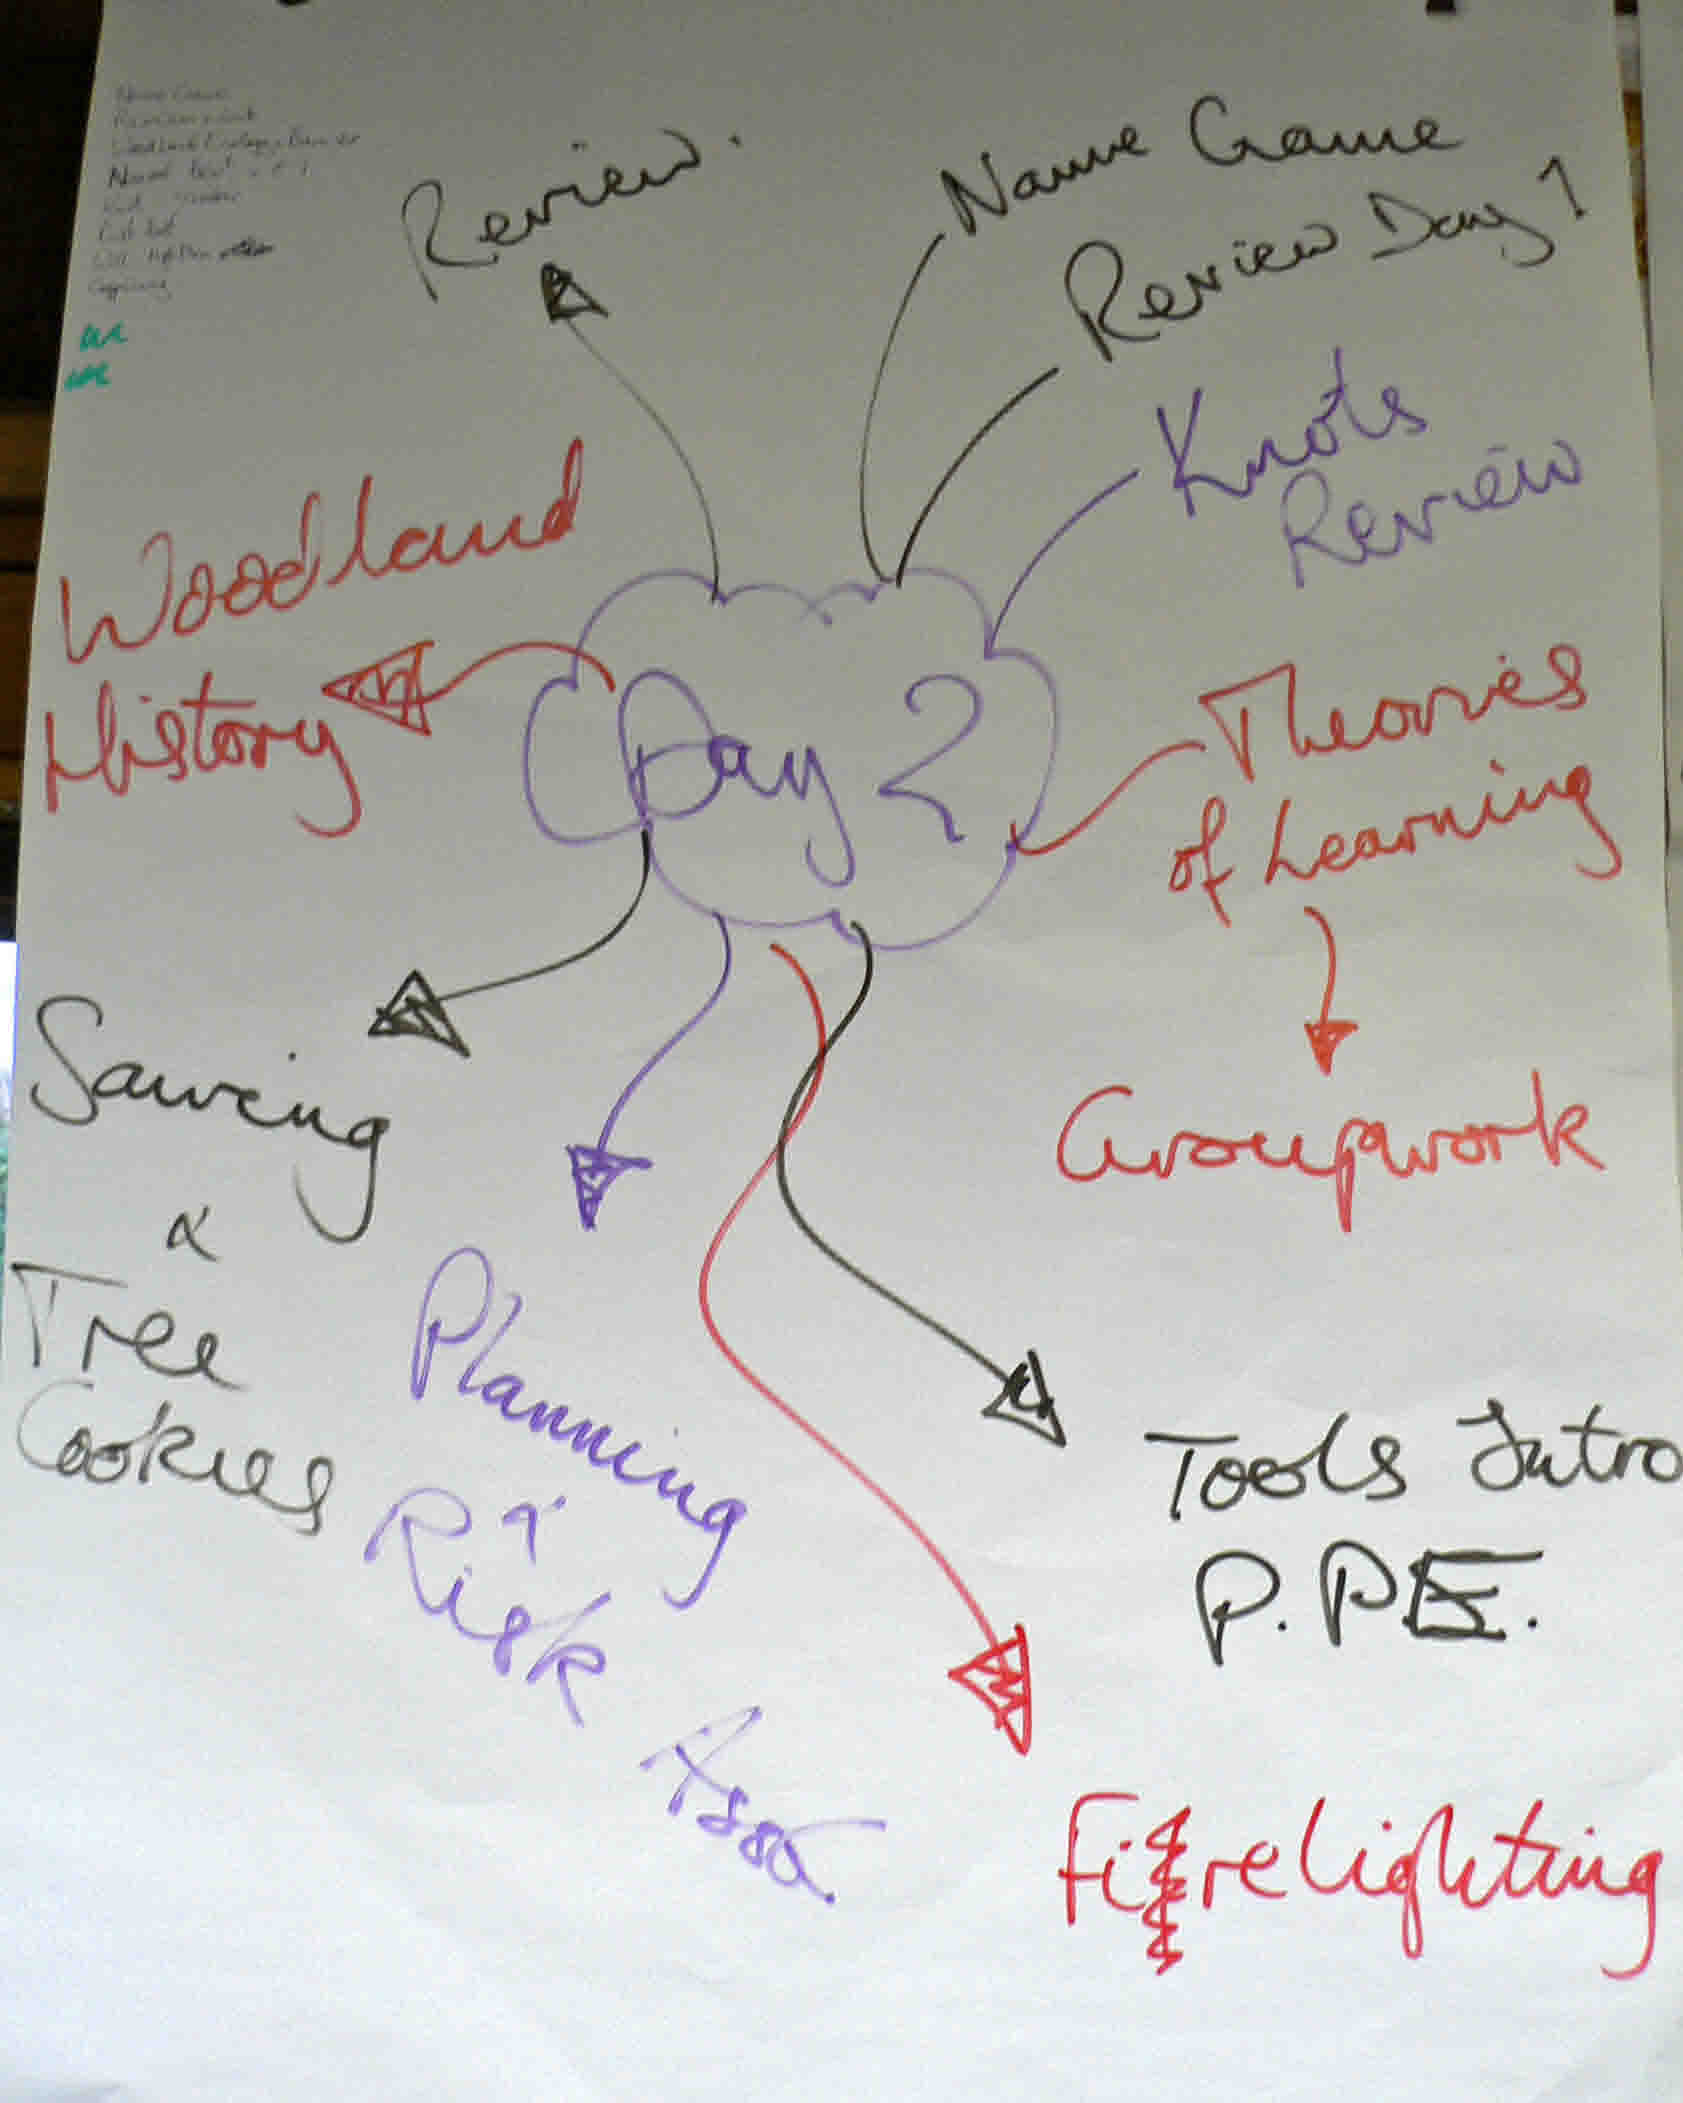 Name Game
Review Day 1
Knots
Review
Theories
of Learning
Groupwork
Tools Intro
P.P.E.
Firelighting
Planning
+
Risk
Ass
Sawing
&
Tree
Cookies
Woodland
History
Review.
Day 2
Name Game